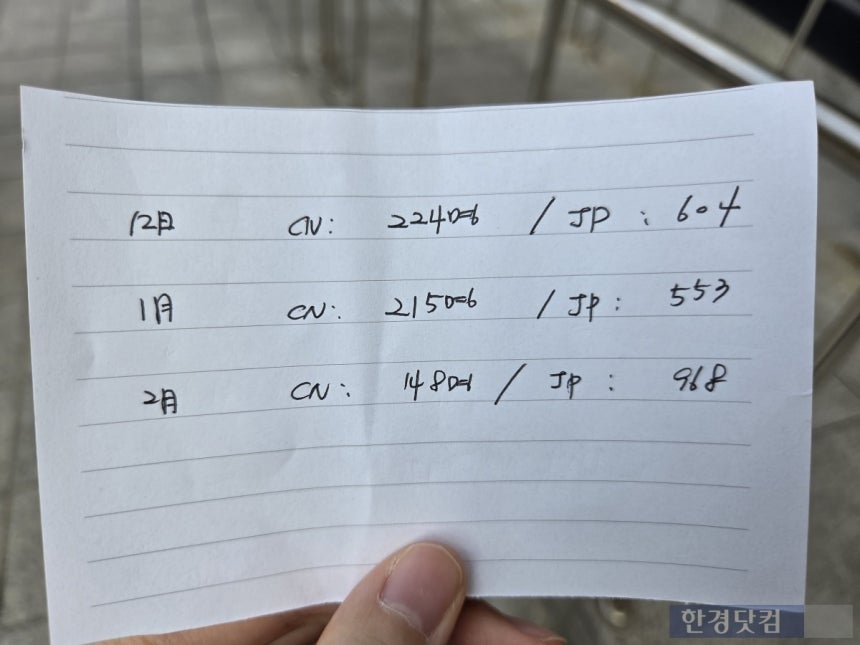 12月 CN: 224명 / JP : 604
1月 CN: 215명 / JP : 553
2月 CN : 148명 / JP : 968
한경닷컴